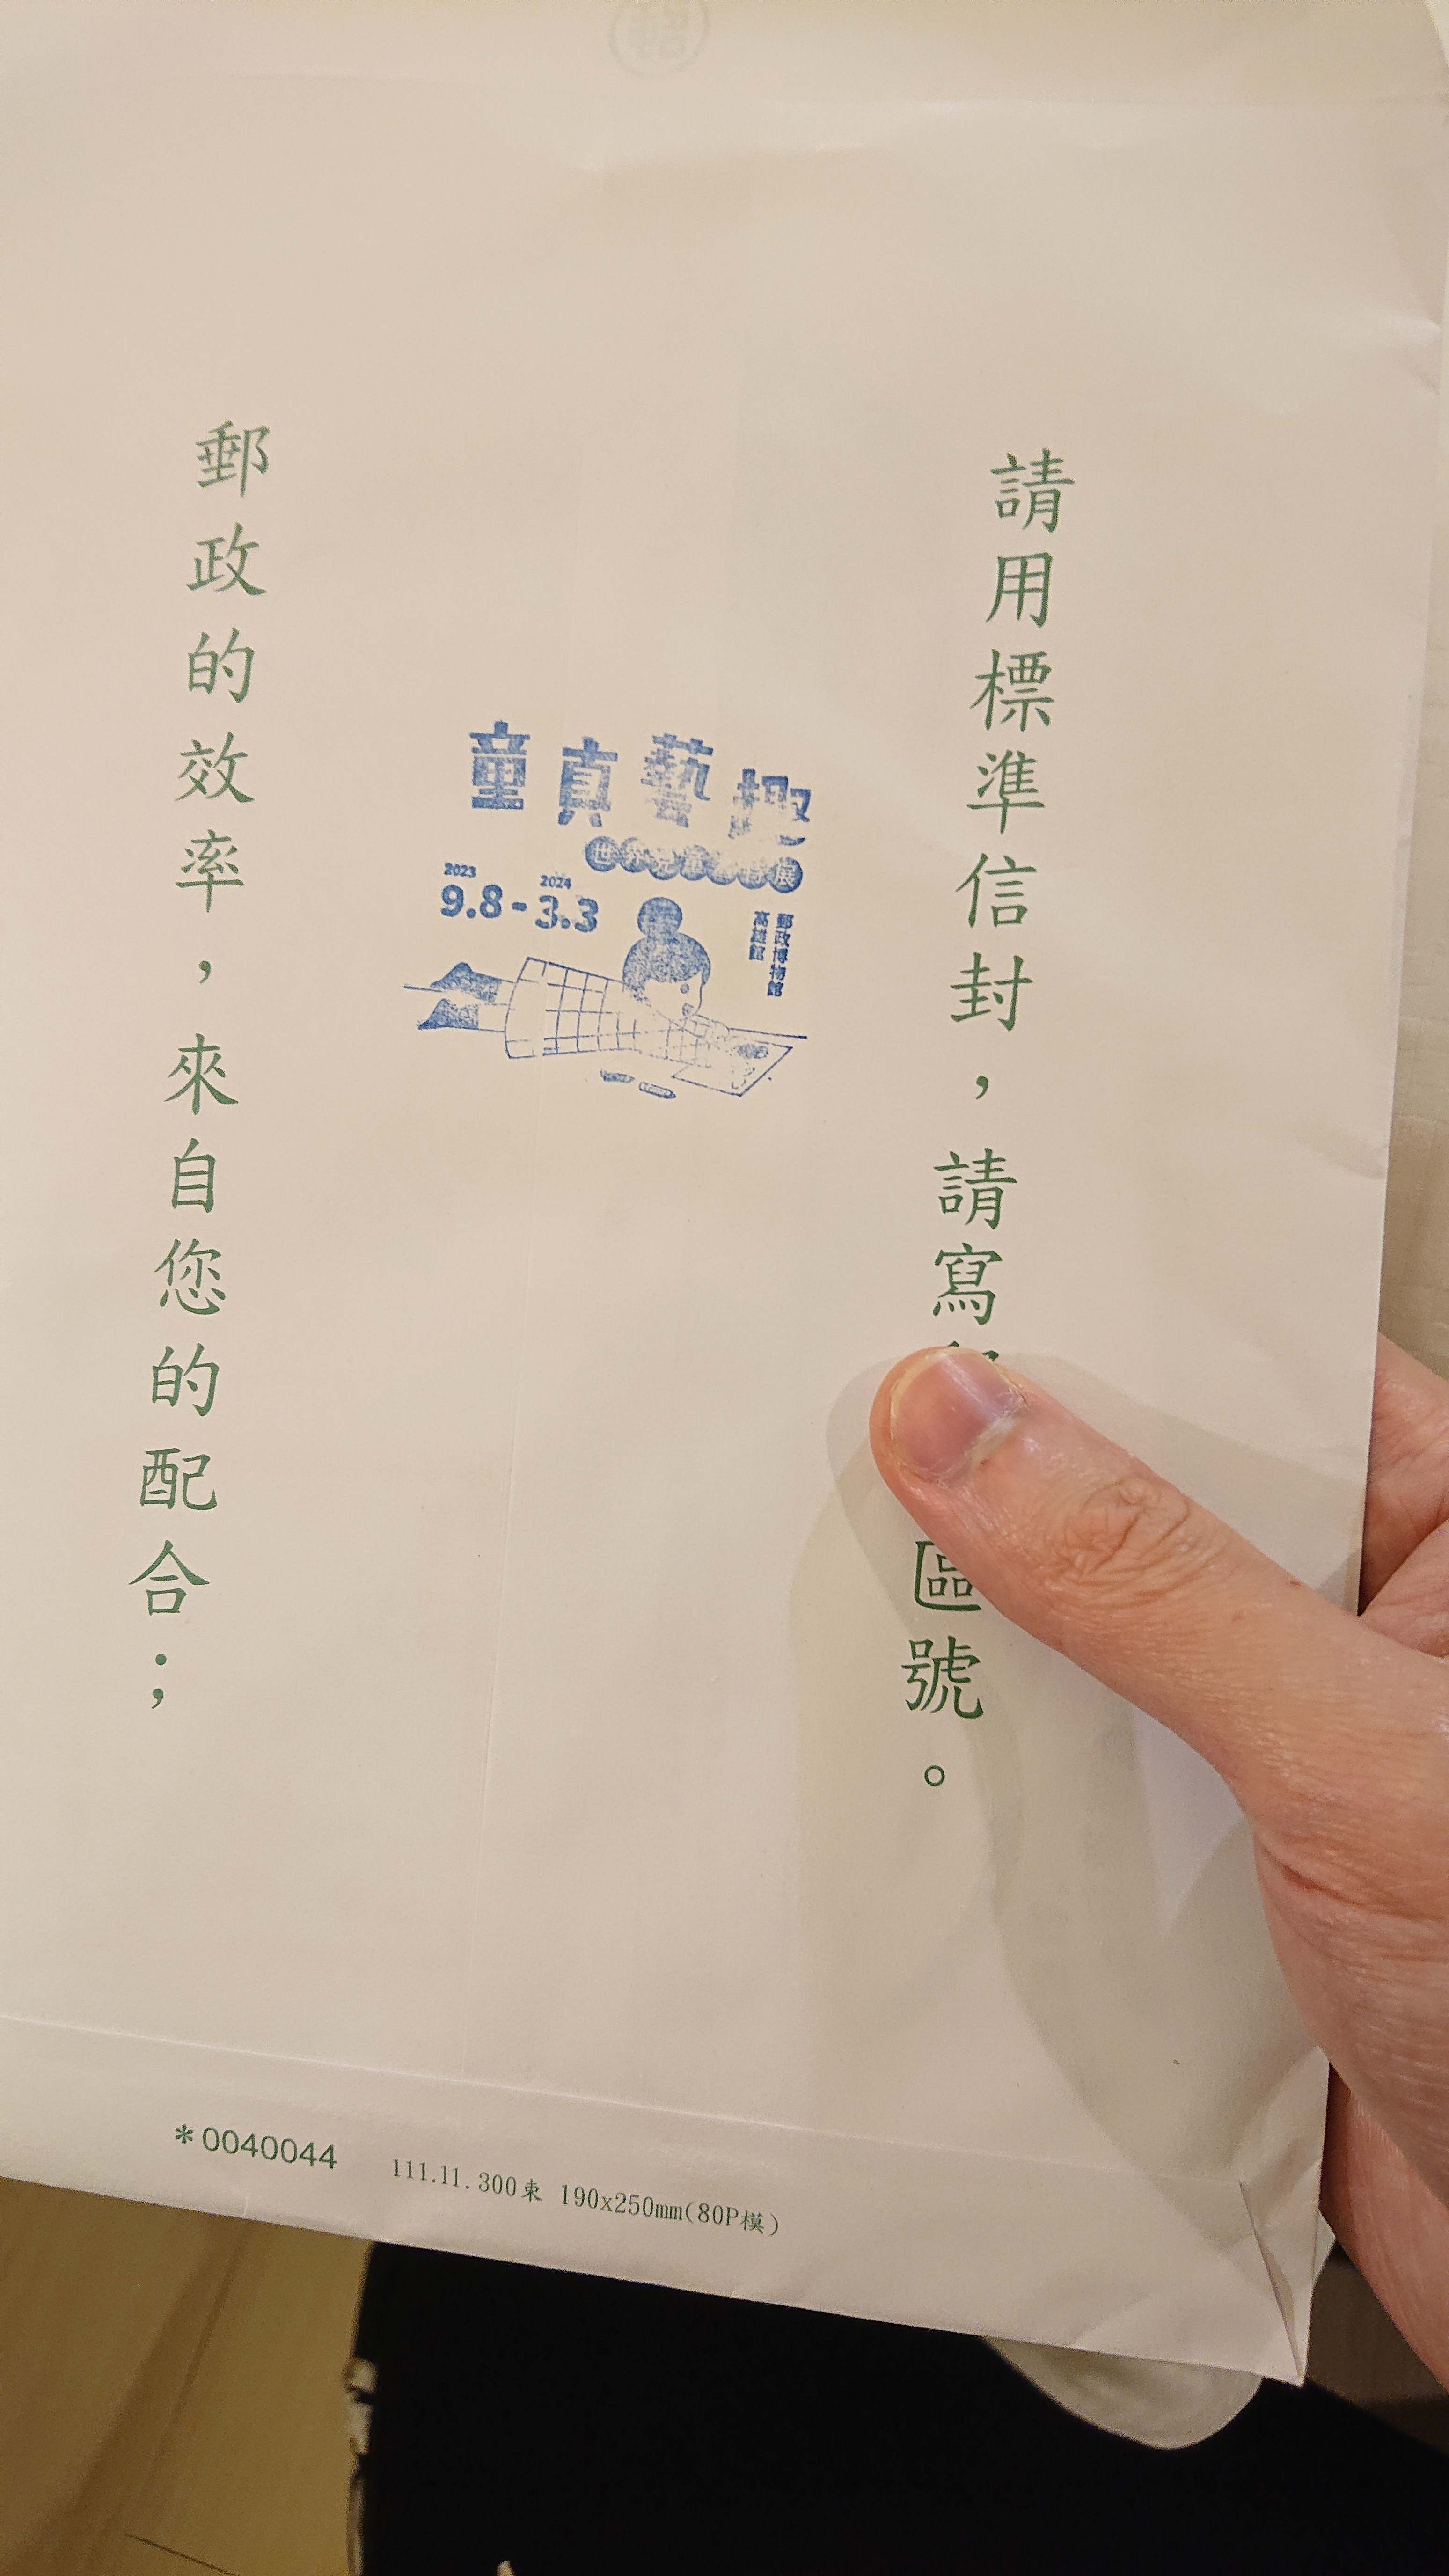 郵政的效率，來自您的配合；
童真藝趣
世界兒童特展
2023 2024
9.8-3.3
郵政博物館
高雄館
請用標準信封，請寫區號。
*0040044 111.11.300束 190x250mm(80P模)